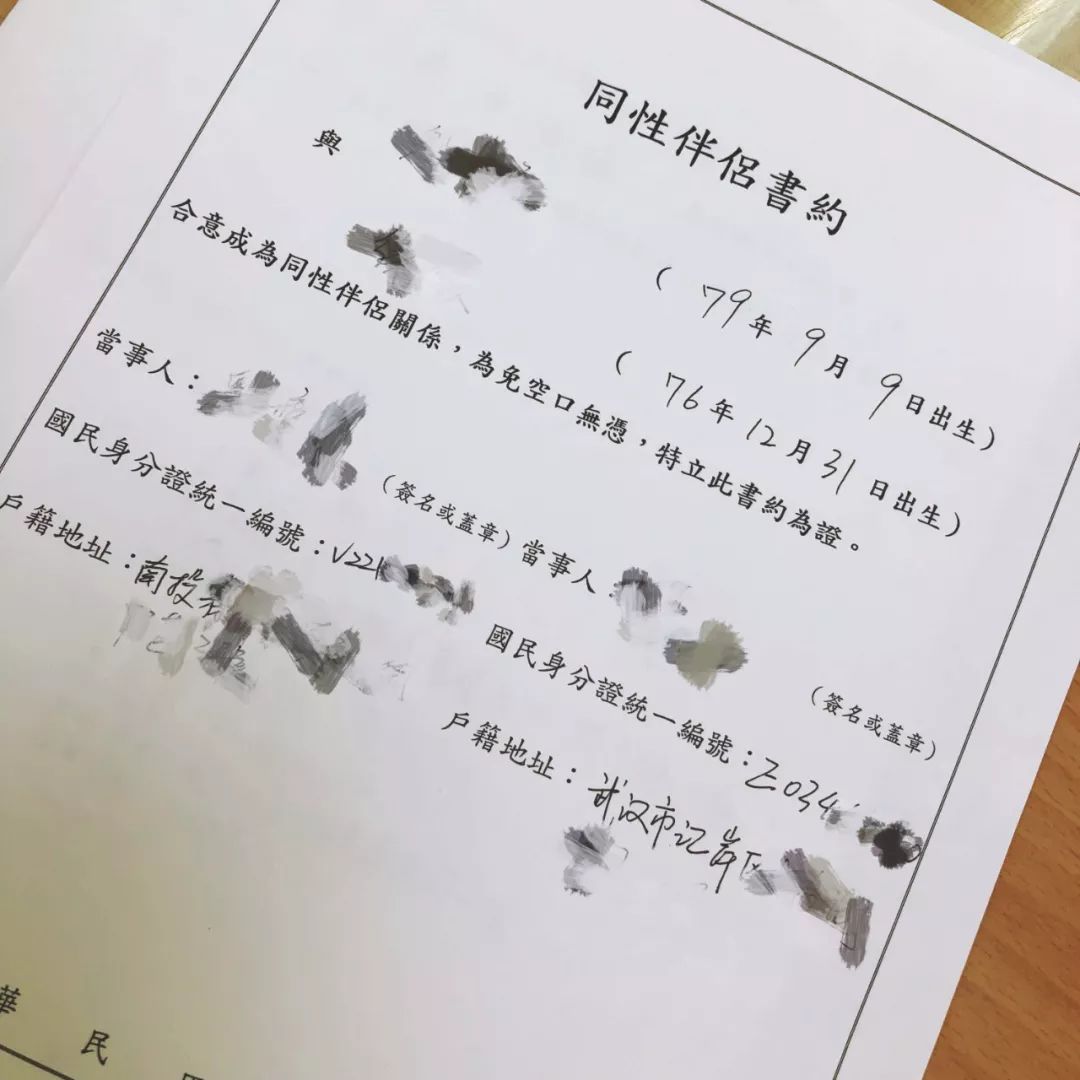 同性伴侶書約
(79年9月9日出生)
與
(76年12月31日出生)
合意成為同性伴侶關係，為免空口無憑，特立此書約為證。
當事人：
(簽名或蓋章)
國民身分證統一編號：V221
戶籍地址：南投
當事人
(簽名或蓋章)
國民身分證統一編號：Z034
戶籍地址：武汉市江岸区
華民